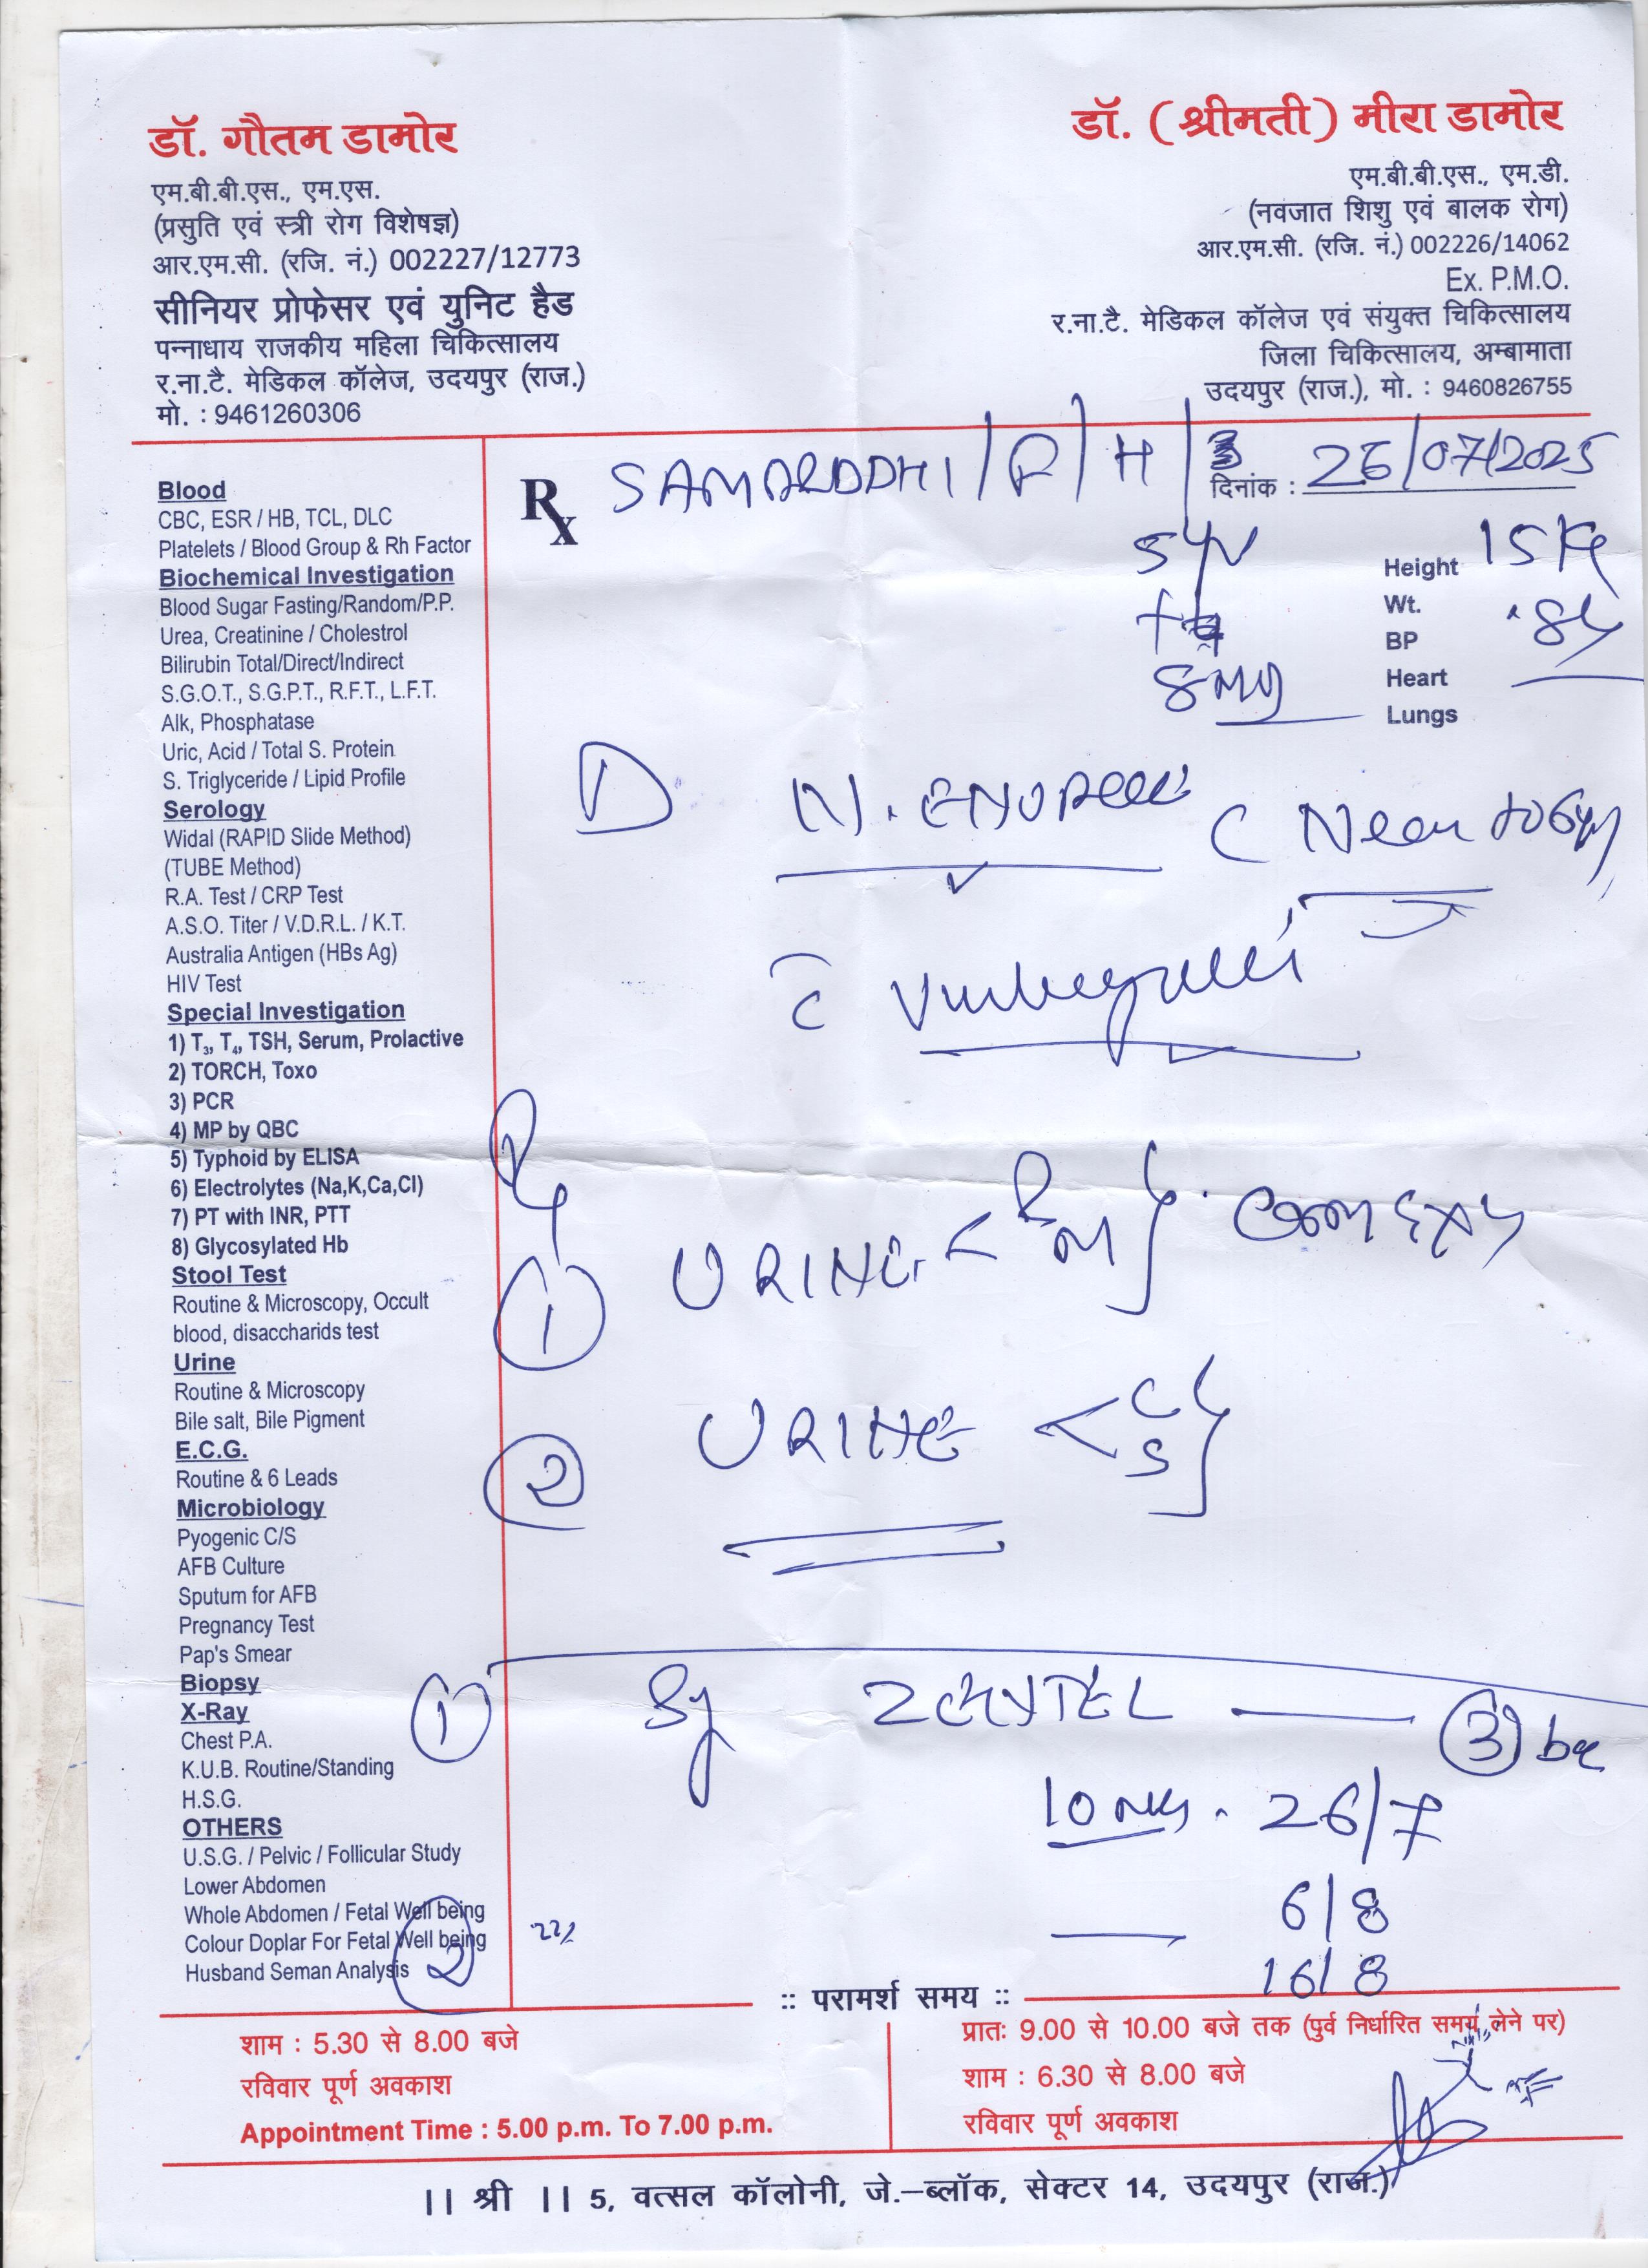 डॉ. गौतम डामोर
एम.बी.बी.एस., एम.एस.
(प्रसुति एवं स्त्री रोग विशेषज्ञ)
आर.एम.सी. (रजि. नं.) 002227/12773
सीनियर प्रोफेसर एवं युनिट हैड
पन्नाधाय राजकीय महिला चिकित्सालय
र.ना.टै. मेडिकल कॉलेज, उदयपुर (राज.)
मो. : 9461260306
डॉ. (श्रीमती) मीरा डामोर
एम.बी.बी.एस., एम.डी.
(नवजात शिशु एवं बालक रोग)
आर.एम.सी. (रजि. नं.) 002226/14062
Ex. P.M.O.
र.ना.टै. मेडिकल कॉलेज एवं संयुक्त चिकित्सालय
जिला चिकित्सालय, अम्बामाता
उदयपुर (राज.), मो. : 9460826755
Blood
CBC, ESR / HB, TCL, DLC
Platelets / Blood Group & Rh Factor
Biochemical Investigation
Blood Sugar Fasting/Random/P.P.
Urea, Creatinine / Cholestrol
Bilirubin Total/Direct/Indirect
S.G.O.T., S.G.P.T., R.F.T., L.F.T.
Alk, Phosphatase
Uric, Acid / Total S. Protein
S. Triglyceride / Lipid Profile
Serology
Widal (RAPID Slide Method)
(TUBE Method)
R.A. Test / CRP Test
A.S.O. Titer / V.D.R.L. / K.T.
Australia Antigen (HBs Ag)
HIV Test
Special Investigation
1) T3, T4, TSH, Serum, Prolactive
2) TORCH, Toxo
3) PCR
4) MP by QBC
5) Typhoid by ELISA
6) Electrolytes (Na,K,Ca,Cl)
7) PT with INR, PTT
8) Glycosylated Hb
Stool Test
Routine & Microscopy, Occult
blood, disaccharids test
Urine
Routine & Microscopy
Bile salt, Bile Pigment
E.C.G.
Routine & 6 Leads
Microbiology
Pyogenic C/S
AFB Culture
Sputum for AFB
Pregnancy Test
Pap's Smear
Biopsy
X-Ray
Chest P.A.
K.U.B. Routine/Standing
H.S.G.
OTHERS
U.S.G. / Pelvic / Follicular Study
Lower Abdomen
Whole Abdomen / Fetal Well being
Colour Doplar For Fetal Well being
Husband Seman Analysis
Rx SAMARDDHI / F / H / 3 दिनांक : 26/07/2025
5 yr
8 m
Height 15 Kg
Wt.
BP
Heart
Lungs
N.
(Near to 6 yr)
1 URINE < R M }
2 URINE < C S }
1 Sy ZENTEL — 3
10 26/7
6/8
16/8
2
:: परामर्श समय ::
शाम : 5.30 से 8.00 बजे
रविवार पूर्ण अवकाश
Appointment Time : 5.00 p.m. To 7.00 p.m.
प्रातः 9.00 से 10.00 बजे तक (पुर्व निर्धारित समय लेने पर)
शाम : 6.30 से 8.00 बजे
रविवार पूर्ण अवकाश
|| श्री || 5, वत्सल कॉलोनी, जे.–ब्लॉक, सेक्टर 14, उदयपुर (राज.)